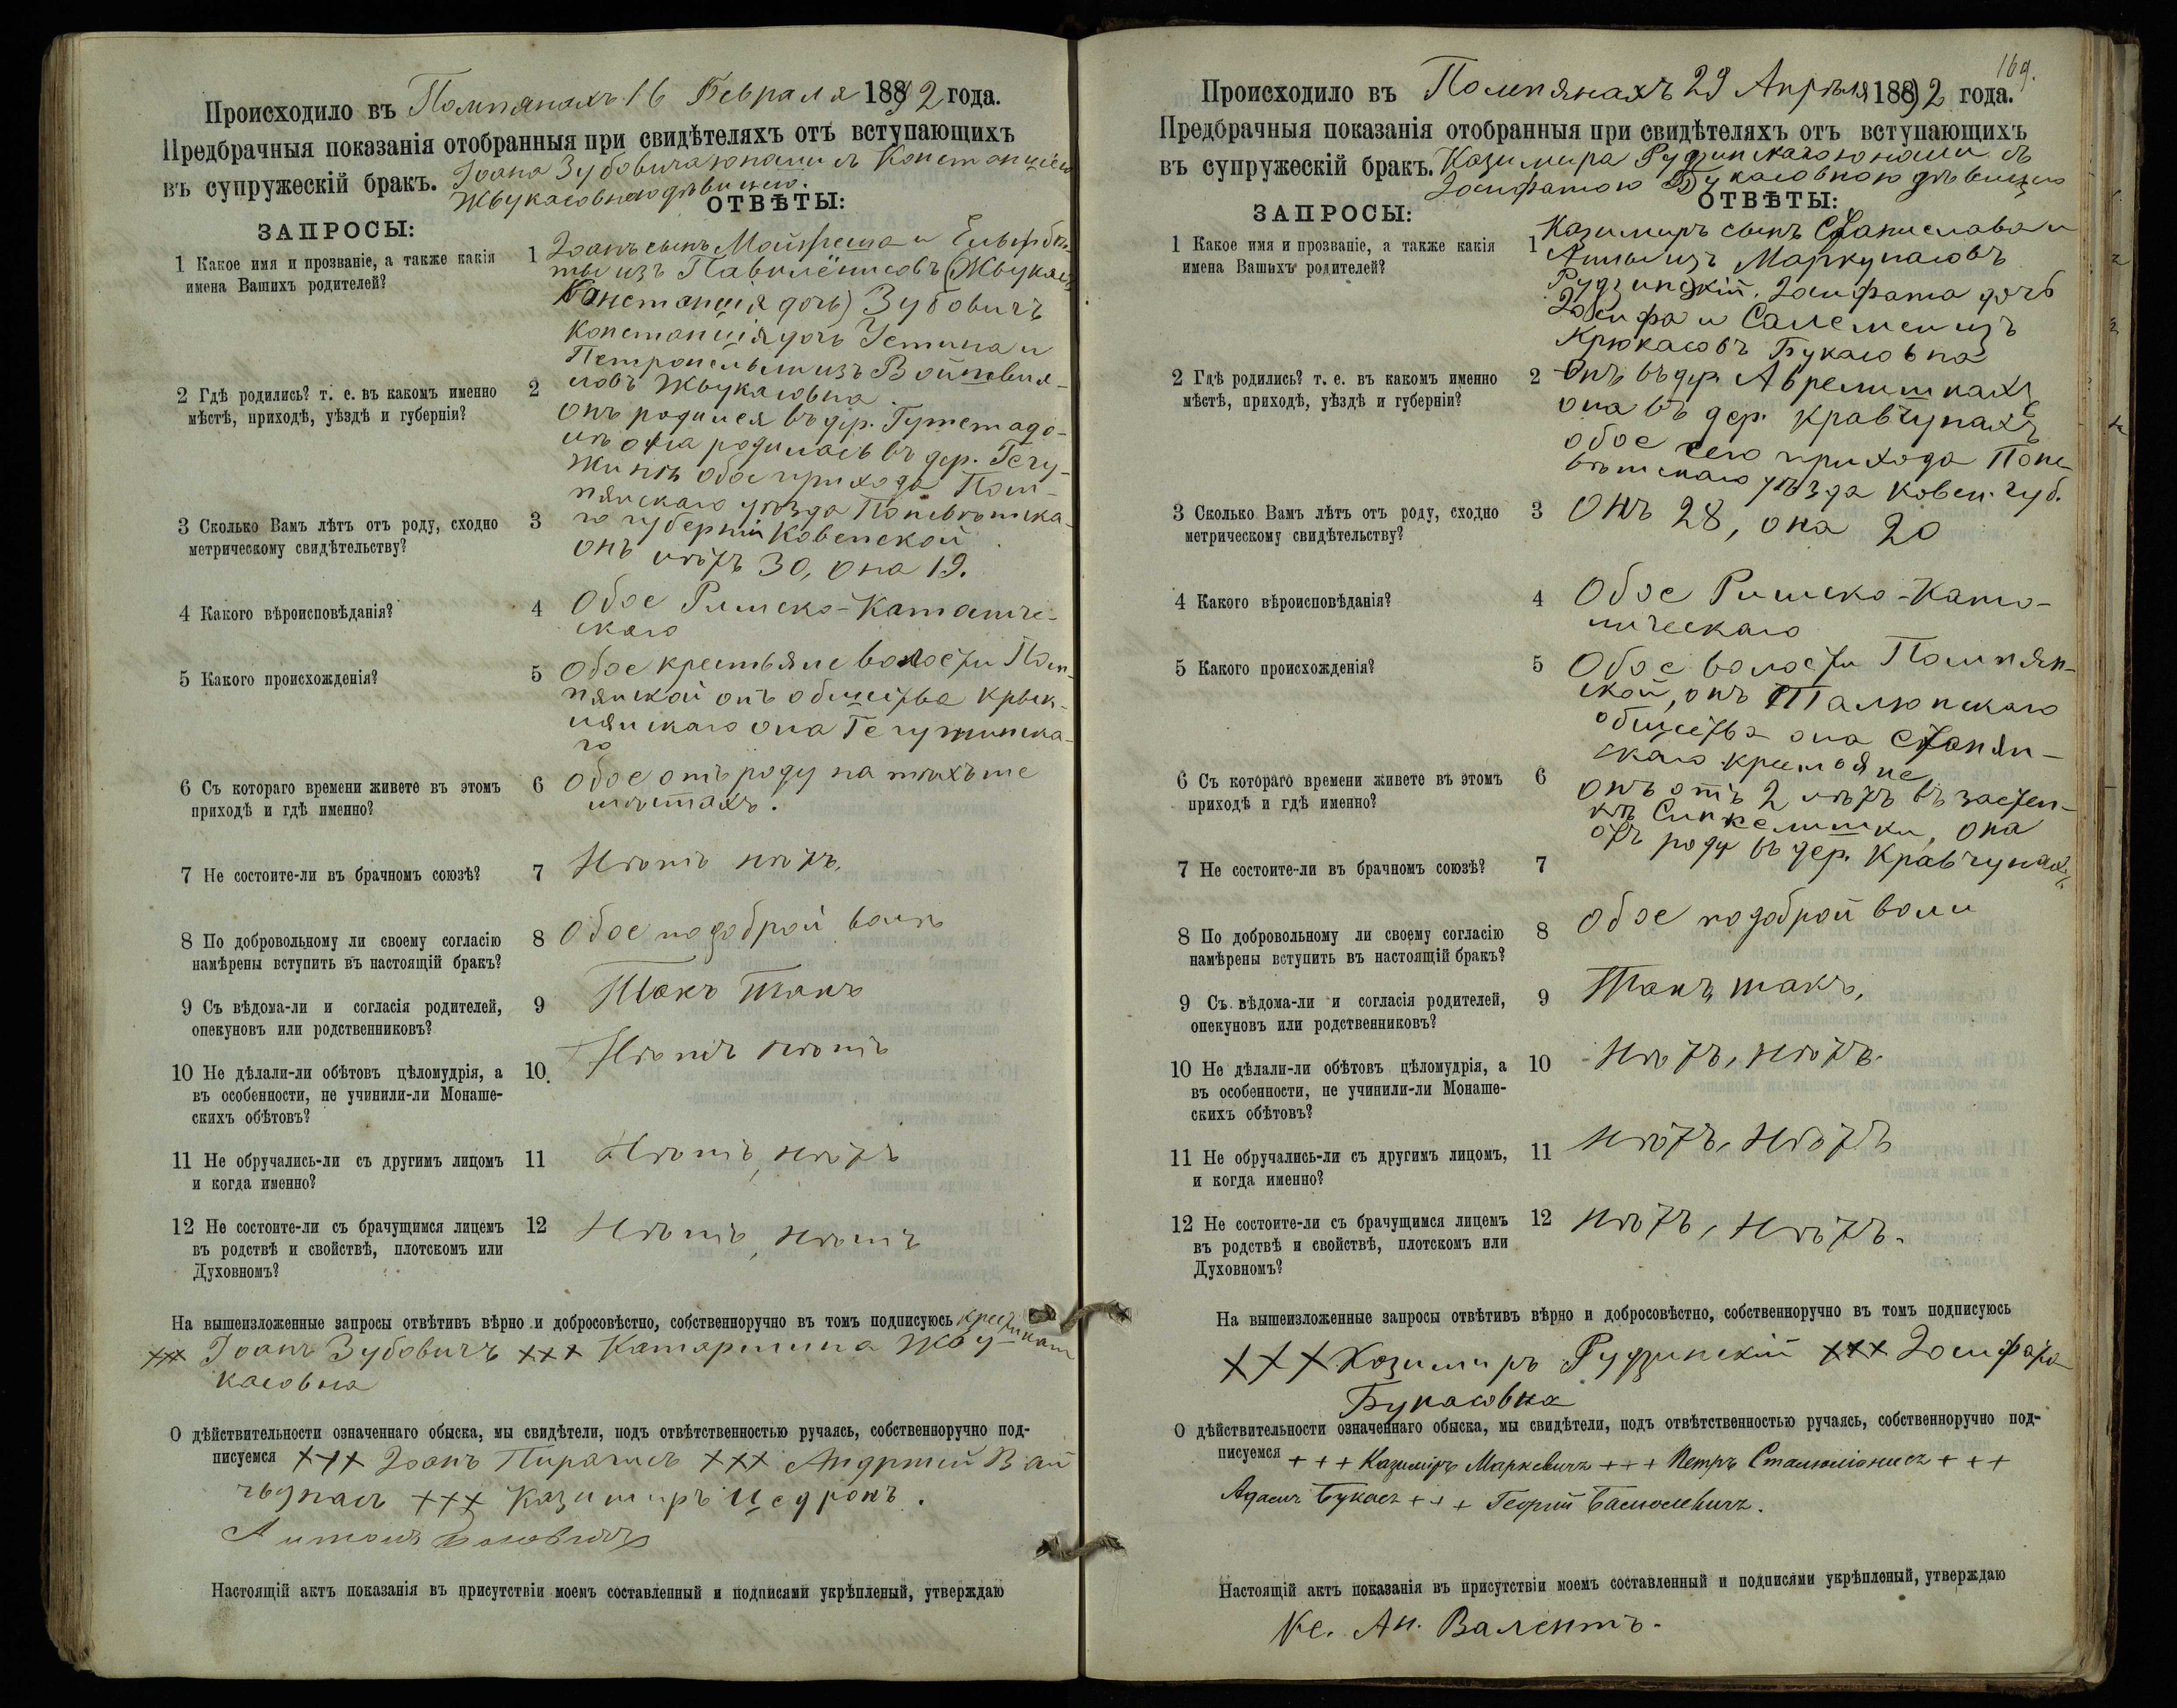 Происходило въ Помпянахъ 16 Февраля 1892 года.
Предбрачныя показанія отобранныя при свидѣтеляхъ отъ вступающихъ
въ супружескій бракъ. Іоана Зубовича юнаши съ Констанціею
Жвукасовною дѣвицею.
ЗАПРОСЫ:
ОТВѢТЫ:
1 Какое имя и прозваніе, а также какія
имена Вашихъ родителей?
1 Іоанъ сынъ и
изъ
Констанція дочь) Зубовичъ
Констанція дочь Устина и
Петронели изъ
Жвукасовна
2 Гдѣ родились? т. е. въ какомъ именно
мѣстѣ, приходѣ, уѣздѣ и губерніи?
2
онъ родился въ дер.
она родилась въ дер. Гегу-
жинѣ обое прихода Пом-
пянскаго уѣзда Поневѣжска-
го губерніи Ковенской
3 Сколько Вамъ лѣтъ отъ роду, сходно
метрическому свидѣтельству?
3
онъ лѣтъ 30, она 19.
4 Какого вѣроисповѣданія?
4 Обое Римско-Католиче-
скаго
5 Какого происхожденія?
5 Обое крестьяне волости Пом-
пянской онъ общества
она
го
6 Съ котораго времени живете въ этомъ
приходѣ и гдѣ именно?
6 Обое отъ роду на тѣхъ же
мѣстахъ.
7 Не состоите-ли въ брачномъ союзѣ?
7 Нѣтъ нѣтъ.
8 По добровольному ли своему согласію
намѣрены вступить въ настоящій бракъ?
8 Обое по доброй волѣ
9 Съ вѣдома-ли и согласія родителей,
опекуновъ или родственниковъ?
9 Такъ такъ
10 Не дѣлали-ли обѣтовъ цѣломудрія, а
въ особенности, не учинили-ли Монаше-
скихъ обѣтовъ?
10. Нѣтъ нѣтъ
11 Не обручались-ли съ другимъ лицомъ
и когда именно?
11 Нѣтъ, нѣтъ
12 Не состоите-ли съ брачущимся лицемъ
въ родствѣ и свойствѣ, плотскомъ или
Духовномъ?
12 Нѣтъ, нѣтъ
На вышеизложенные запросы отвѣтивъ вѣрно и добросовѣстно, собственноручно въ томъ подписуюсь крестиками
××× Іоанъ Зубовичъ ××× Катаржина Жву-
касовна
О дѣйствительности означеннаго обыска, мы свидѣтели, подъ отвѣтственностью ручаясь, собственноручно под-
писуемся ××× Іоанъ Пирагисъ ××× Андржей Вай
××× Казимиръ Цедронъ.
Антонъ
Настоящій актъ показанія въ присутствіи моемъ составленный и подписями укрѣпленый, утверждаю
169.
Происходило въ Помпянахъ 29 Апрѣля 1892 года.
Предбрачныя показанія отобранныя при свидѣтеляхъ отъ вступающихъ
въ супружескій бракъ. Казимира Рудзинскаго юнаши съ
Іозифатою Букасовною дѣвицею
ЗАПРОСЫ:
ОТВѢТЫ:
1 Какое имя и прозваніе, а также какія
имена Вашихъ родителей?
Казимиръ сынъ Станислава и
1 Анны изъ Маркунасовъ
Рудзинскій. Іозифата дочь
Іозифа и Саломеи изъ
Крюкасовъ Букасовна
2 Гдѣ родились? т. е. въ какомъ именно
мѣстѣ, приходѣ, уѣздѣ и губерніи?
2 Онъ въ дер. Аврелишкахъ
она въ дер. Кравчунахъ
обое сего прихода Поне-
вѣжскаго уѣзда Ковен. губ.
3 Сколько Вамъ лѣтъ отъ роду, сходно
метрическому свидѣтельству?
3 Онъ 28, она 20
4 Какого вѣроисповѣданія?
4 Обое Римско-Като-
лическаго
5 Какого происхожденія?
5 Обое волости Помпян-
ской, онъ Талюнскаго
общества она
скаго крестьяне
6 Съ котораго времени живете въ этомъ
приходѣ и гдѣ именно?
6
онъ отъ 2 лѣтъ въ застѣн-
кѣ Синкелишки, она
отъ роду въ дер. Кравчунахъ
7 Не состоите-ли въ брачномъ союзѣ?
7
8 По добровольному ли своему согласію
намѣрены вступить въ настоящій бракъ?
8 Обое по доброй воли
9 Съ вѣдома-ли и согласія родителей,
опекуновъ или родственниковъ?
9 Такъ, такъ,
10 Не дѣлали-ли обѣтовъ цѣломудрія, а
въ особенности, не учинили-ли Монаше-
скихъ обѣтовъ?
10 Нѣтъ, нѣтъ.
11 Не обручались-ли съ другимъ лицомъ,
и когда именно?
11 Нѣтъ, нѣтъ
12 Не состоите-ли съ брачущимся лицемъ
въ родствѣ и свойствѣ, плотскомъ или
Духовномъ?
12 Нѣтъ, нѣтъ.
На вышеизложенные запросы отвѣтивъ вѣрно и добросовѣстно, собственноручно въ томъ подписуюсь
××× Казимиръ Рудзинскій ××× Іозифата
Букасовна
О дѣйствительности означеннаго обыска, мы свидѣтели, подъ отвѣтственностью ручаясь, собственноручно под-
писуемся + + + Казиміръ Маркевичъ + + + Петръ Сталюліонисъ + + +
Адамъ Букасъ + + + Георгій
Настоящій актъ показанія въ присутствіи моемъ составленный и подписями укрѣпленый, утверждаю
Кс. Ан. Валентъ.